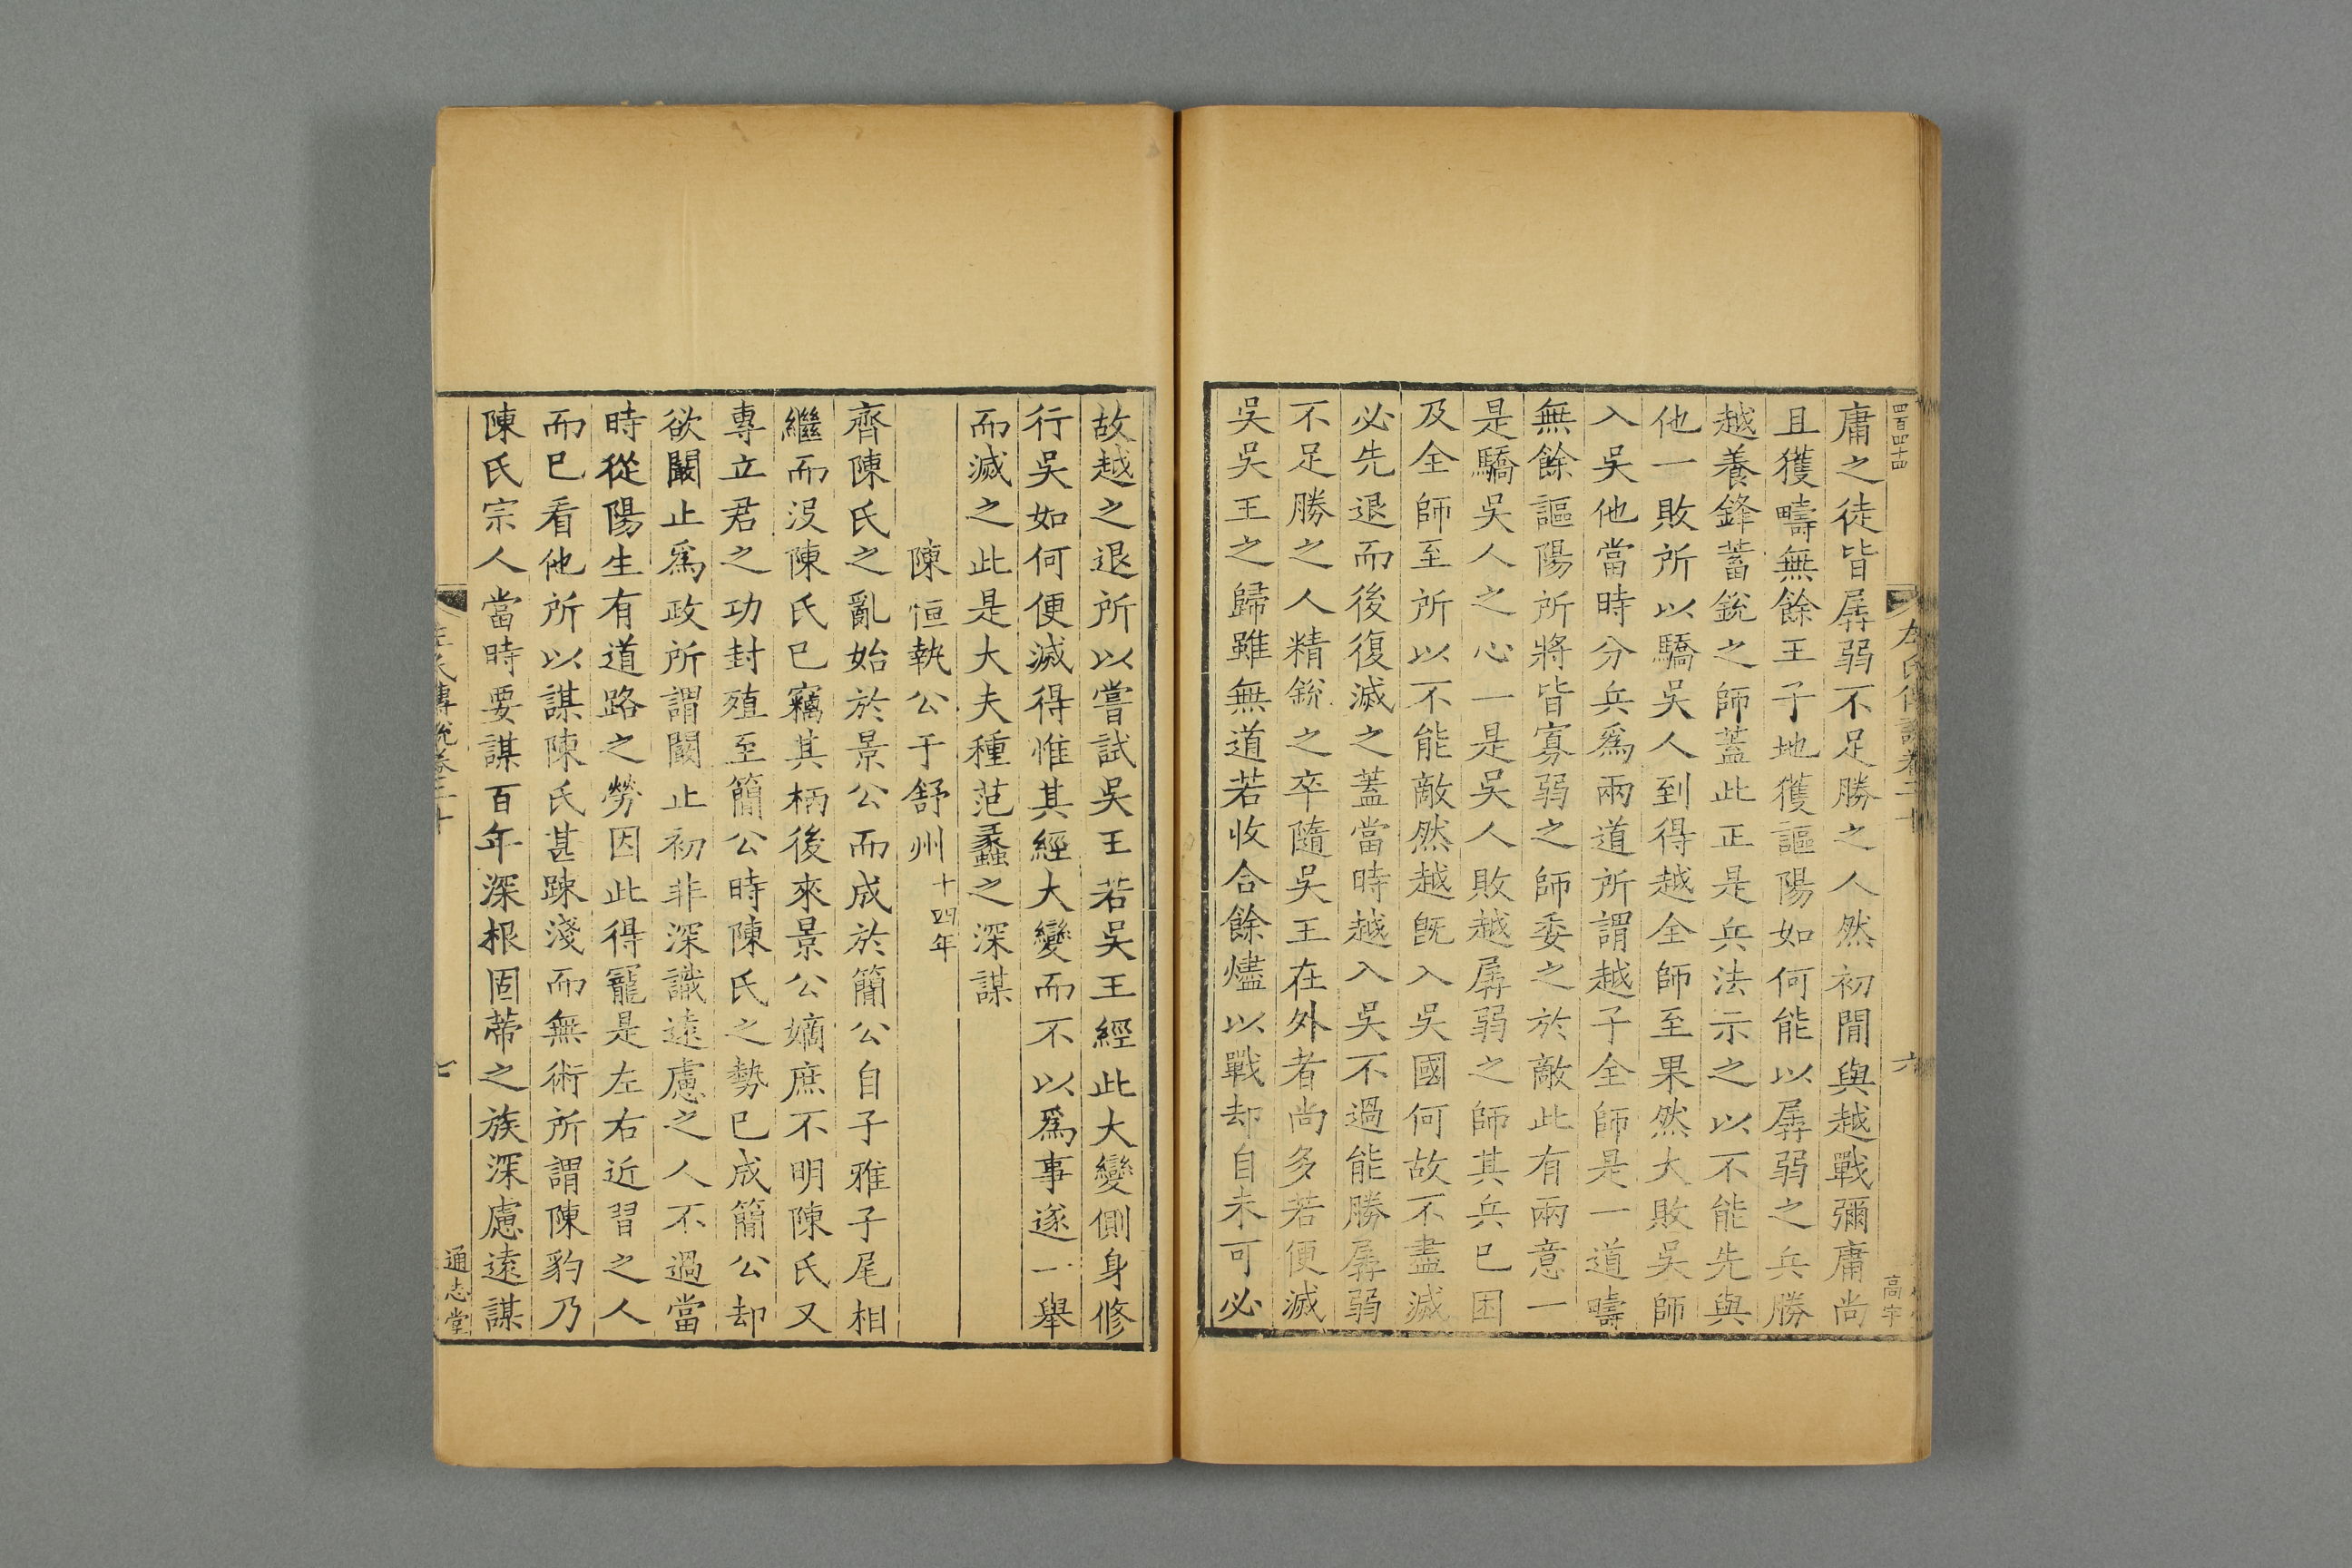 四百四十四
左氏傳說卷二十
六
高宇
庸之徒皆孱弱不足勝之人然初間與越戰彌庸尚
且獲疇無餘王子地獲謳陽如何能以孱弱之兵勝
越養鋒蓄銳之師蓋此正是兵法示之以不能先與
他一敗所以驕吳人到得越全師至果然大敗吳師
入吳他當時分兵爲兩道所謂越子全師是一道疇
無餘謳陽所將皆寡弱之師委之於敵此有兩意一
是驕吳人之心一是吳人敗越孱弱之師其兵已困
及全師至所以不能敵然越旣入吳國何故不盡滅
必先退而後復滅之蓋當時越入吳不過能勝孱弱
不足勝之人精銳之卒隨吳王在外者尚多若便滅
吳吳王之歸雖無道若收合餘燼以戰却自未可必
故越之退所以嘗試吳王若吳王經此大變側身修
行吳如何便滅得惟其經大變而不以爲事遂一舉
而滅之此是大夫種范蠡之深謀
陳恒執公于舒州十四年
齊陳氏之亂始於景公而成於簡公自子雅子尾相
繼而沒陳氏已竊其柄後來景公嫡庶不明陳氏又
專立君之功封殖至簡公時陳氏之勢已成簡公却
欲闞止爲政所謂闞止初非深識遠慮之人不過當
時從陽生有道路之勞因此得寵是左右近習之人
而已看他所以謀陳氏甚踈淺而無術所謂陳豹乃
陳氏宗人當時要謀百年深根固蔕之族深慮遠謀
左氏傳說卷二十
七
通志堂